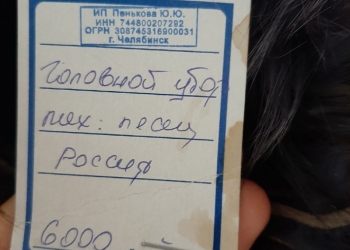 ИП Пенькова Ю.Ю.
ИНН 744800207292
ОГРН 308745316900031
г. Челябинск
Головной убор
мех: песец
Россия
6000